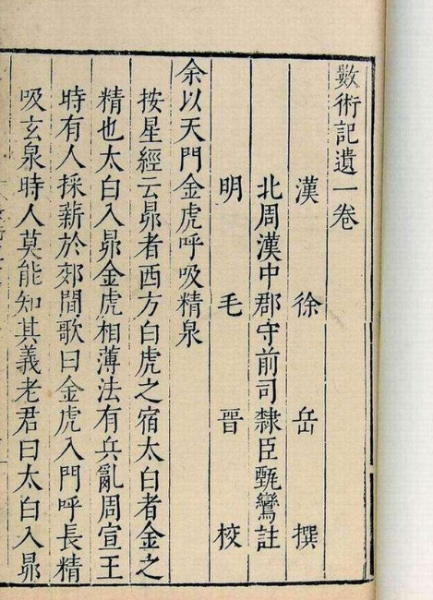 數術記遺一卷
漢徐岳撰
北周漢中郡守前司隸臣甄鸞註
明毛晉校
余以天門金虎呼吸精泉
按星經云昴者西方白虎之宿太白者金之
精也太白入昴金虎相薄法有兵亂周宣王
時有人採薪於郊間歌曰金虎入門呼長精
吸玄泉時人莫能知其義老君曰太白入昴